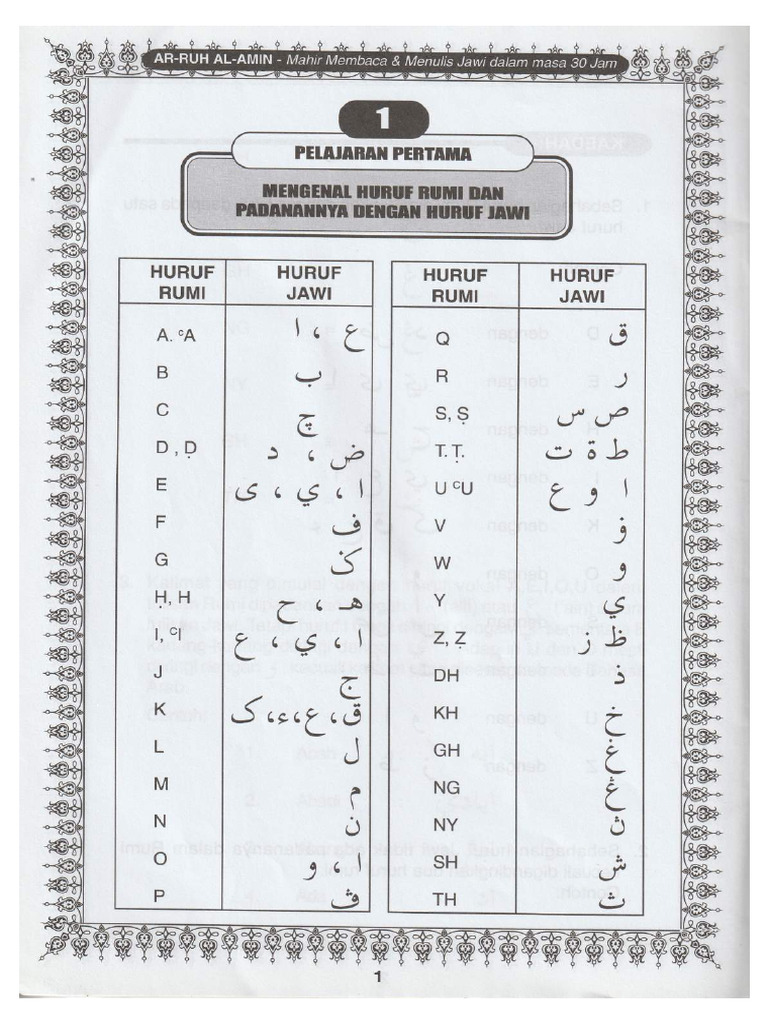 AR-RUH AL-AMIN - Mahir Membaca & Menulis Jawi dalam masa 30 Jam
1
PELAJARAN PERTAMA
MENGENAL HURUF RUMI DAN
PADANANNYA DENGAN HURUF JAWI
HURUF RUMI HURUF JAWI
A. ᶜA ع ، ا
B ب
C چ
D , Ḍ ض ، د
E ا ، ي ، ى
F ف
G ک
Ḥ, H هـ ، ح
I, ᶜI ا ، ي ، ع
J ج
K ق، ع، ء، ک
L ل
M م
N ن
O ا ، و
P ڤ
HURUF RUMI HURUF JAWI
Q ق
R ر
S, S ص س
T. Ṭ. ط ة ت
U ᶜU ا و ع
V ۏ
W و
Y ي
Z, Z ظ ز
DH ذ
KH خ
GH غ
NG ڠ
NY ڽ
SH ش
TH ث
1